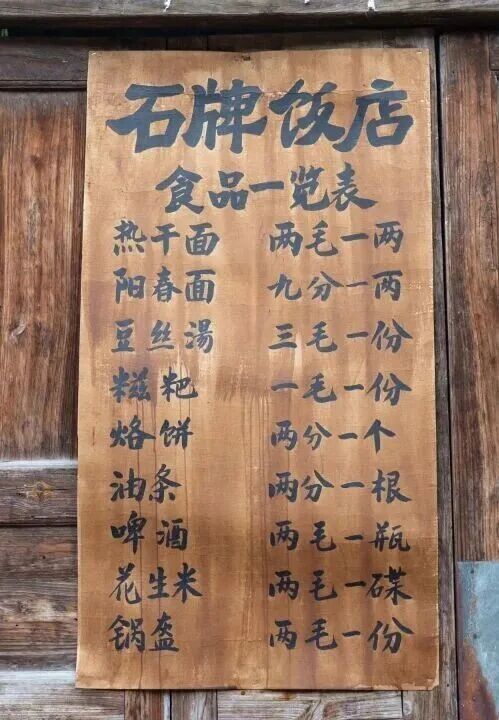 石牌饭店
食品一览表
热干面 两毛一两
阳春面 九分一两
豆丝湯 三毛一份
糍粑 一毛一份
烙饼 两分一个
油条 两分一根
啤酒 两毛一瓶
花生米 两毛一碟
锅盔 两毛一份